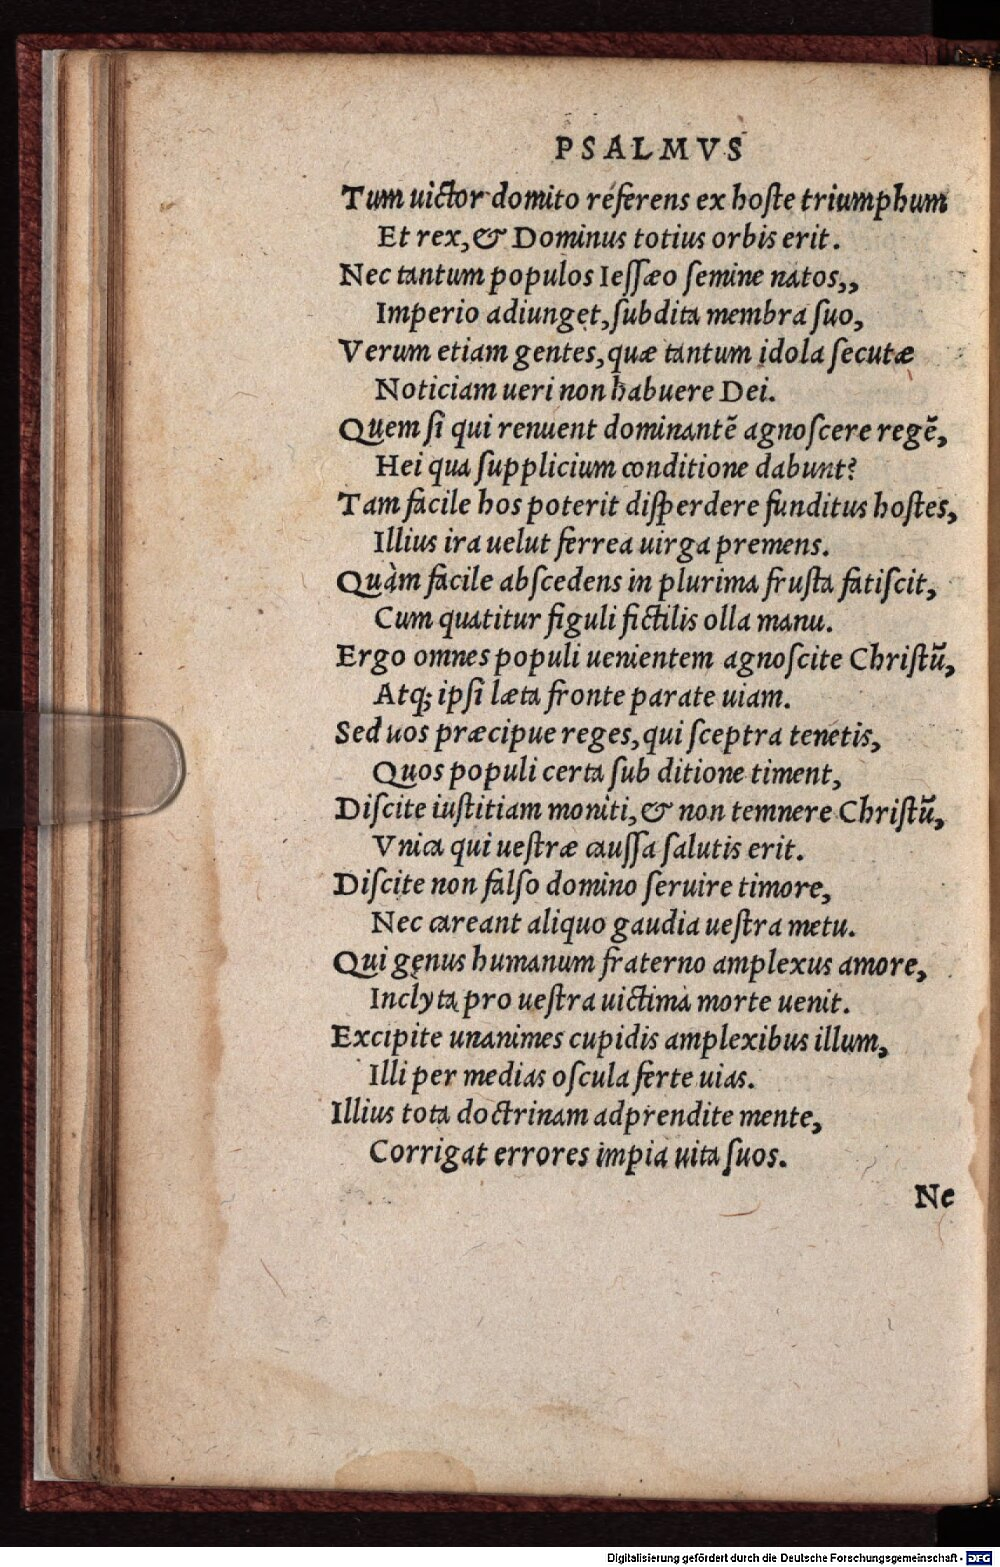 PSALMVS
Tum uictor domito referens ex hoſte triumphum
Et rex, & Dominus totius orbis erit.
Nec tantum populos Ieſſæo ſemine natos,,
Imperio adiunget, ſubdita membra ſuo,
Verum etiam gentes, quæ tantum idola ſecutæ
Noticiam ueri non habuere Dei.
Quem ſi qui renuent dominantē agnoſcere regē,
Hei qua ſupplicium conditione dabunt?
Tam facile hos poterit diſperdere funditus hoſtes,
Illius ira uelut ferrea uirga premens.
Quàm facile abſcedens in plurima fruſta fatiſcit,
Cum quatitur figuli fictilis olla manu.
Ergo omnes populi uenientem agnoſcite Chriſtū,
Atq; ipſi læta fronte parate uiam.
Sed uos præcipue reges, qui ſceptra tenetis,
Quos populi certa ſub ditione timent,
Diſcite iuſtitiam moniti, & non temnere Chriſtū,
Vnica qui ueſtræ cauſſa ſalutis erit.
Diſcite non falſo domino ſeruire timore,
Nec careant aliquo gaudia ueſtra metu.
Qui genus humanum fraterno amplexus amore,
Inclyta pro ueſtra uictima morte uenit.
Excipite unanimes cupidis amplexibus illum,
Illi per medias oſcula ferte uias.
Illius tota doctrinam adprendite mente,
Corrigat errores impia uita ſuos.
Ne
Digitalisierung gefördert durch die Deutsche Forschungsgemeinschaft - DFG